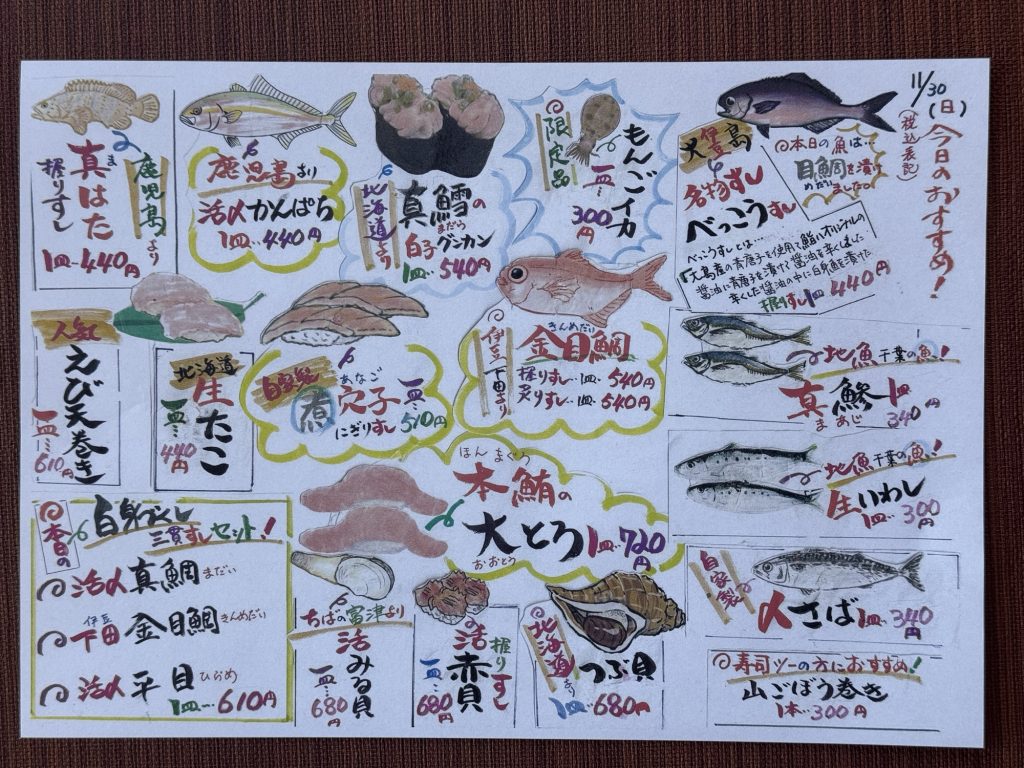 11/30(日)
税込表記
今日のおすすめ!
伊豆大島
名物すし
べっこうすし
本日の魚は…
目鯛を漬け
めだい
ました。
べっこうすしとは…
「大島産の青唐子を使用て鮨はオリジナルの
醤油に青唐子を漬けて醤油を辛くしました
辛くした醤油の中に白身魚を漬けた
握りすし1皿440円
限定品
もんごイカ
一皿…
300円
北海道より
真鱈の
まだら
白子グンカン
1皿…540円
鹿児島より
活〆かんぱち
1皿…440円
鹿児島より
真はた
ま
握りすし
1皿…440円
人気
えび天巻き
一皿…610円
北海道
生たこ
一皿…440円
自家製
煮穴子
あなご
にぎりすし
一皿…510円
伊豆下田より
金目鯛
きんめだい
握りすし…1皿…540円
炙りすし…1皿…540円
地魚千葉の魚!
真鯵
まあじ
1皿340円
地魚千葉の魚!
生いわし
1皿…300円
自家製
〆さば1皿…340円
寿司ツーの方におすすめ!
山ごぼう巻き
1本…300円
本鮪の
ほんまぐろ
大とろ1皿…720円
おおとろ
本日の
白身づくし
三貫すしセット!
活〆真鯛まだい
伊豆
下田金目鯛きんめだい
活〆平目ひらめ
1皿…610円
ちばの富津より
活みる貝
一皿…680円
活赤貝
握りすし
一皿…680円
北海道より
つぶ貝
1皿…680円